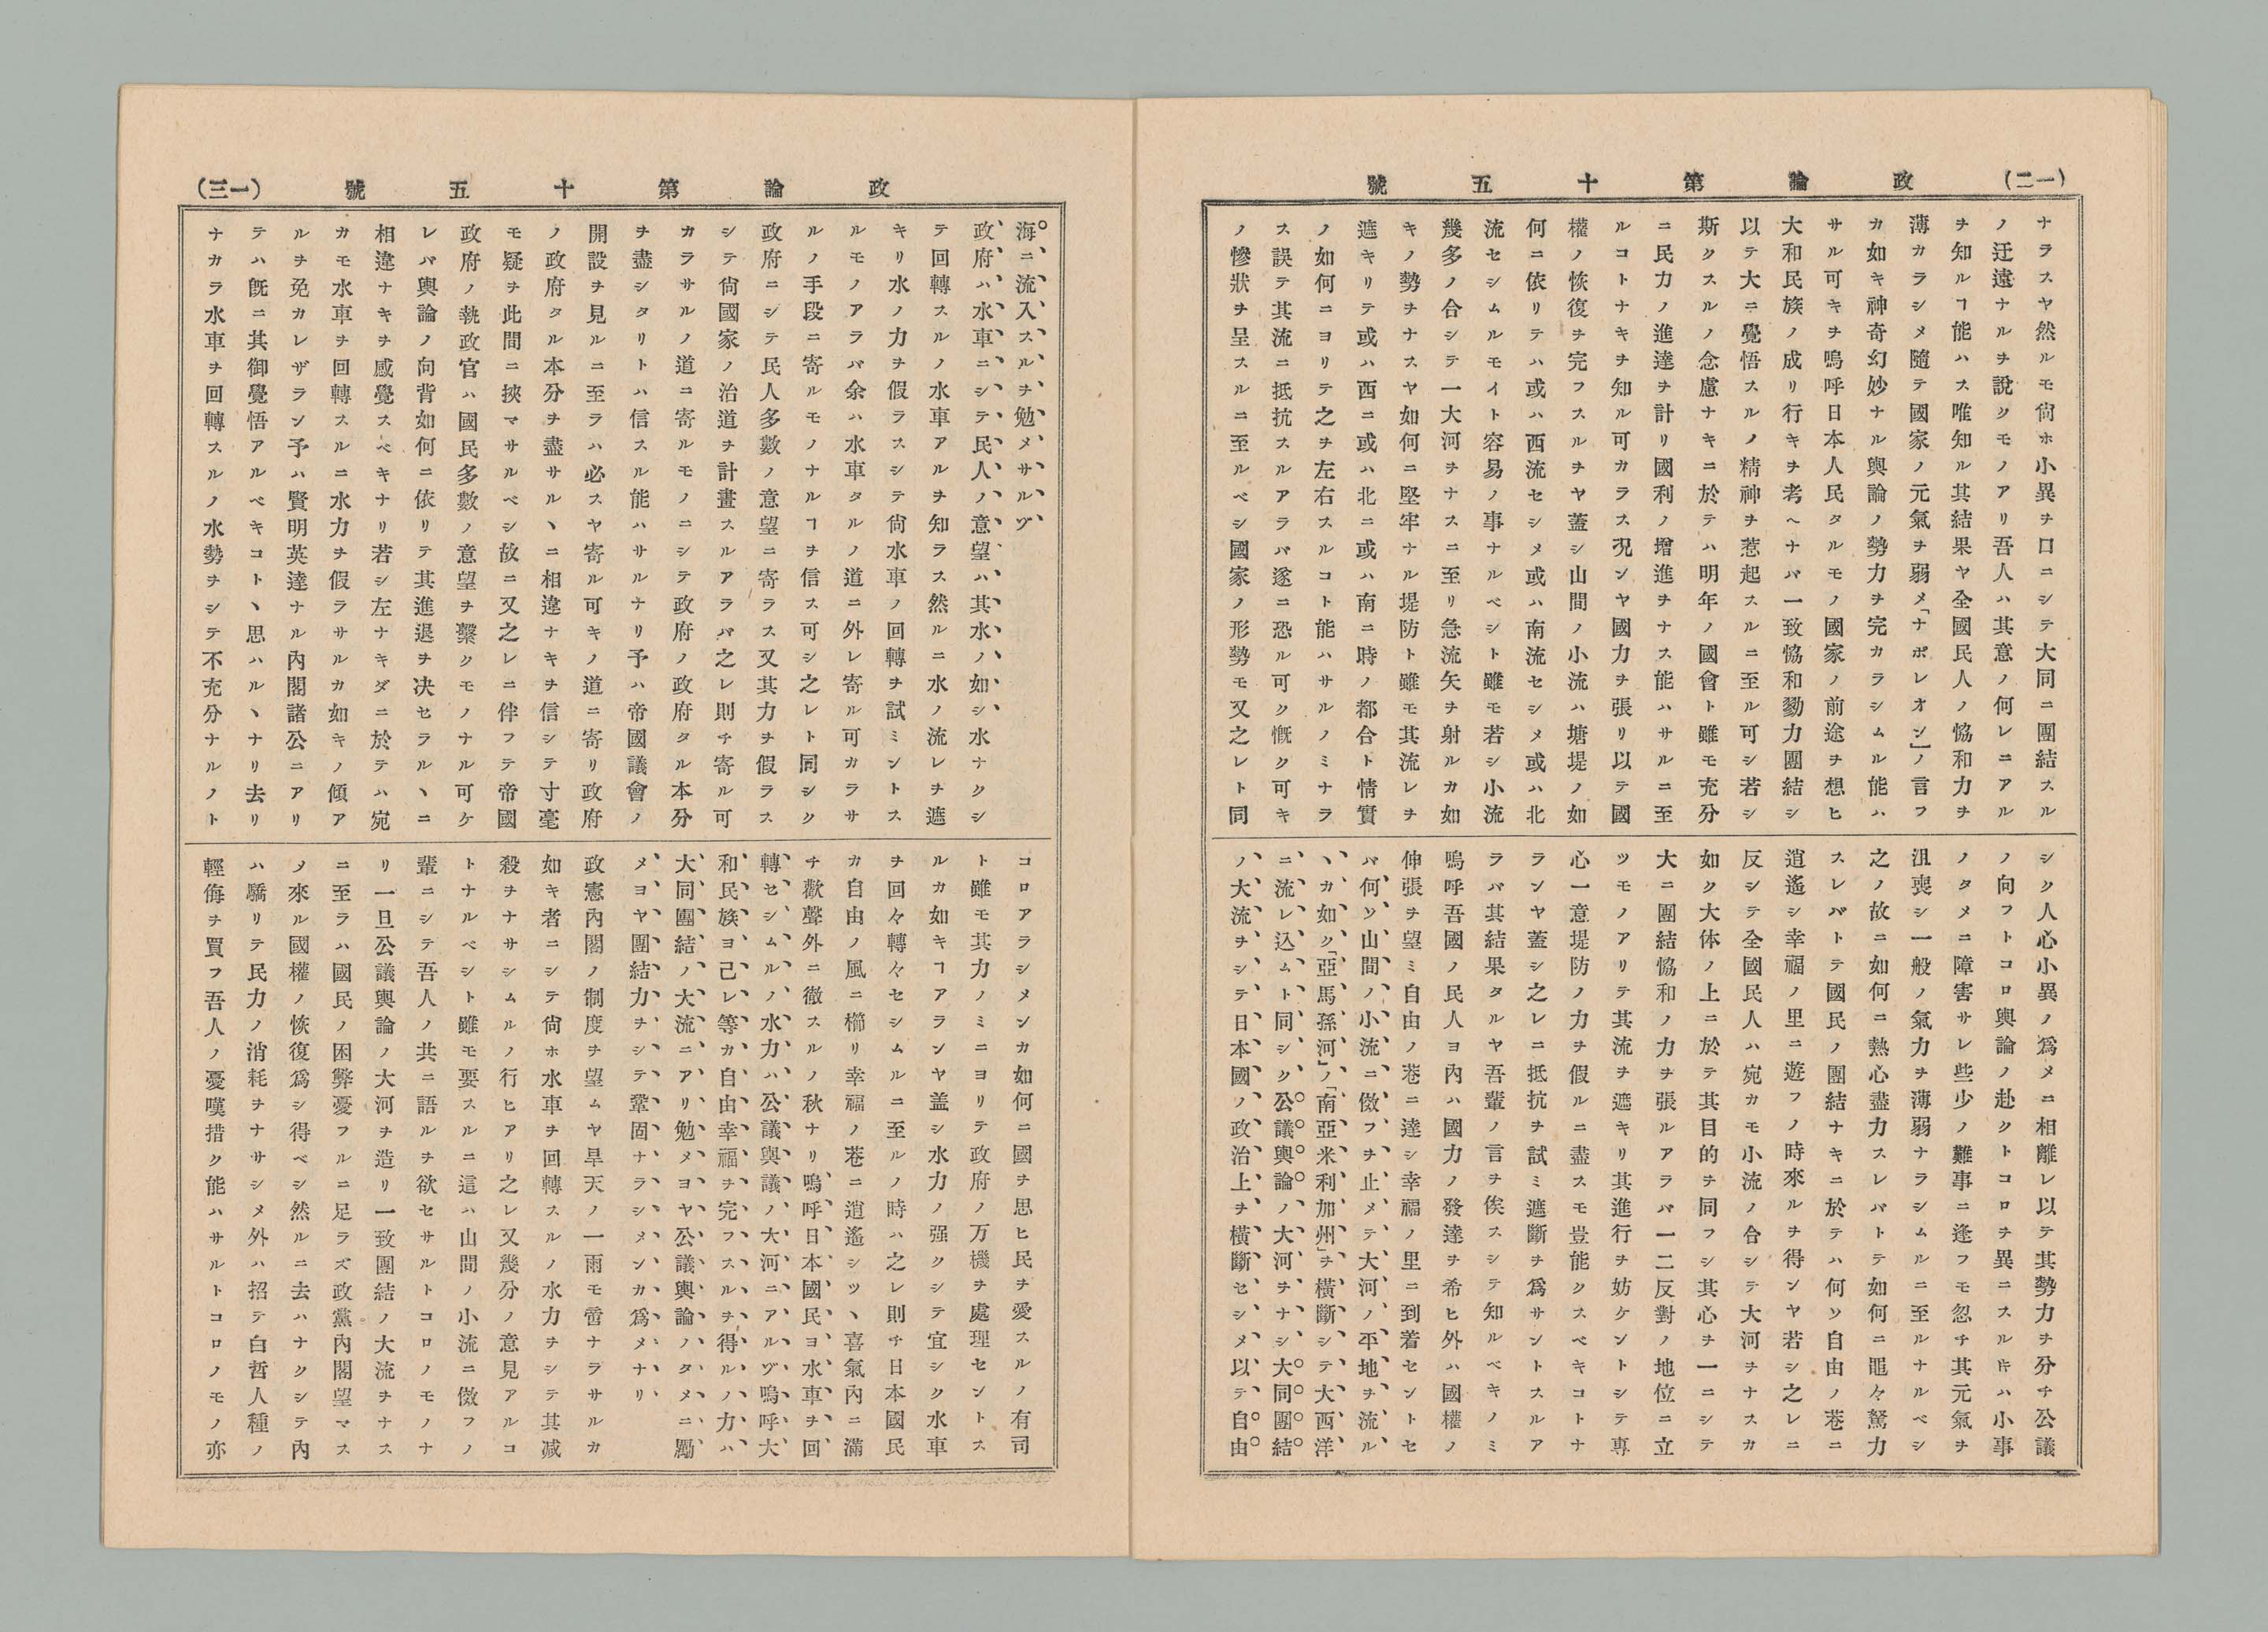 (一二)
政論第十五號
ナラスヤ然ルモ尙ホ小異ヲ口ニシテ大同ニ團結スル
ノ迂遠ナルヲ說クモノアリ吾人ハ其意ノ何レニアル
ヲ知ルヿ能ハス唯知ル其結果ヤ全國民人ノ恊和力ヲ
薄カラシメ隨テ國家ノ元氣ヲ弱メ「ナポレオン」ノ言フ
カ如キ神奇幻妙ナル輿論ノ勢力ヲ完カラシムル能ハ
サル可キヲ嗚呼日本人民タルモノ國家ノ前途ヲ想ヒ
大和民族ノ成リ行キヲ考ヘナバ一致恊和勠力團結シ
以テ大ニ覺悟スルノ精神ヲ惹起スルニ至ル可シ若シ
斯クスルノ念慮ナキニ於テハ明年ノ國會ト雖モ充分
ニ民力ノ進達ヲ計リ國利ノ增進ヲナス能ハサルニ至
ルコトナキヲ知ル可カラス况ンヤ國力ヲ張リ以テ國
權ノ恢復ヲ完フスルヲヤ蓋シ山間ノ小流ハ塘堤ノ如
何ニ依リテハ或ハ西流セシメ或ハ南流セシメ或ハ北
流セシムルモイト容易ノ事ナルベシト雖モ若シ小流
幾多ノ合シテ一大河ヲナスニ至リ急流矢ヲ射ルカ如
キノ勢ヲナスヤ如何ニ堅牢ナル堤防ト雖モ其流レヲ
遮キリテ或ハ西ニ或ハ北ニ或ハ南ニ時ノ都合ト情實
ノ如何ニヨリテ之ヲ左右スルコト能ハサルノミナラ
ス誤テ其流ニ抵抗スルアラバ遂ニ恐ル可ク慨ク可キ
ノ慘狀ヲ呈スルニ至ルベシ國家ノ形勢モ又之レト同
シク人心小異ノ爲メニ相離レ以テ其勢力ヲ分チ公議
ノ向フトコロ輿論ノ赴クトコロヲ異ニスルキハ小事
ノタメニ障害サレ些少ノ難事ニ逢フモ忽チ其元氣ヲ
沮喪シ一般ノ氣力ヲ薄弱ナラシムルニ至ルナルベシ
之ノ故ニ如何ニ熱心盡力スレバトテ如何ニ黽々駑力
スレバトテ國民ノ團結ナキニ於テハ何ソ自由ノ巷ニ
逍遙シ幸福ノ里ニ遊フノ時來ルヲ得ンヤ若シ之レニ
反シテ全國民人ハ宛カモ小流ノ合シテ大河ヲナスカ
如ク大体ノ上ニ於テ其目的ヲ同フシ其心ヲ一ニシテ
大ニ團結恊和ノ力ヲ張ルアラバ一二反對ノ地位ニ立
ツモノアリテ其流ヲ遮キリ其進行ヲ妨ケントシテ專
心一意堤防ノ力ヲ假ルニ盡スモ豈能クスベキコトナ
ランヤ蓋シ之レニ抵抗ヲ試ミ遮斷ヲ爲サントスルア
ラバ其結果タルヤ吾輩ノ言ヲ俟スシテ知ルベキノミ
嗚呼吾國ノ民人ヨ內ハ國力ノ發達ヲ希ヒ外ハ國權ノ
伸張ヲ望ミ自由ノ巷ニ達シ幸福ノ里ニ到着セントセ
バ何ソ山間ノ小流ニ傚フヲ止メテ大河ノ平地ヲ流ル
ヽカ如ク「亞馬孫河」ノ「南亞米利加州」ヲ橫斷シテ大西洋
ニ流レ込ムト同シク公議輿論ノ大河ヲナシ大同團結
ノ大流ヲシテ日本國ノ政治上ヲ橫斷セシメ以テ自由
政論第十五號
(一三)
海ニ流入スルヲ勉メサルヅ
政府ハ水車ニシテ民人ノ意望ハ其水ノ如シ水ナクシ
テ回轉スルノ水車アルヲ知ラス然ルニ水ノ流レヲ遮
キリ水ノ力ヲ假ラスシテ尙水車ノ回轉ヲ試ミントス
ルモノアラバ余ハ水車タルノ道ニ外レ寄ル可カラサ
ルノ手段ニ寄ルモノナルヿヲ信ス可シ之レト同シク
政府ニシテ民人多數ノ意望ニ寄ラス又其力ヲ假ラス
シテ尙國家ノ治道ヲ計畫スルアラバ之レ則チ寄ル可
カラサルノ道ニ寄ルモノニシテ政府ノ政府タル本分
ヲ盡シタリトハ信スル能ハサルナリ予ハ帝國議會ノ
開設ヲ見ルニ至ラハ必スヤ寄ル可キノ道ニ寄リ政府
ノ政府タル本分ヲ盡サルヽニ相違ナキヲ信シテ寸毫
モ疑ヲ此間ニ挾マサルベシ故ニ又之レニ伴フテ帝國
政府ノ執政官ハ國民多數ノ意望ヲ繫クモノナル可ケ
レバ輿論ノ向背如何ニ依リテ其進退ヲ决セラルヽニ
相違ナキヲ感覺スベキナリ若シ左ナキダニ於テハ宛
カモ水車ヲ回轉スルニ水力ヲ假ラサルカ如キノ傾ア
ルヲ免カレザラン予ハ賢明英達ナル內閣諸公ニアリ
テハ旣ニ其御覺悟アルベキコトヽ思ハルヽナリ去リ
ナカラ水車ヲ回轉スルノ水勢ヲシテ不充分ナルノト
コロアラシメンカ如何ニ國ヲ思ヒ民ヲ愛スルノ有司
ト雖モ其力ノミニヨリテ政府ノ万機ヲ處理セントス
ルカ如キヿアランヤ盖シ水力ノ强クシテ宜シク水車
ヲ回々轉々セシムルニ至ルノ時ハ之レ則チ日本國民
カ自由ノ風ニ櫛リ幸福ノ巷ニ逍遙シツヽ喜氣內ニ滿
チ歡聲外ニ徹スルノ秋ナリ嗚呼日本國民ヨ水車ヲ回
轉セシムルノ水力ハ公議輿議ノ大河ニアルヅ嗚呼大
和民族ヨ己レ等カ自由幸福ヲ完フスルヲ得ルノ力ハ
大同團結ノ大流ニアリ勉メヨヤ公議輿論ノタメニ勵
メヨヤ團結力ヲシテ鞏固ナラシメンカ爲メナリ
政憲內閣ノ制度ヲ望ムヤ旱天ノ一雨モ啻ナラサルカ
如キ者ニシテ尙ホ水車ヲ回轉スルノ水力ヲシテ其减
殺ヲナサシムルノ行ヒアリ之レ又幾分ノ意見アルコ
トナルベシト雖モ要スルニ這ハ山間ノ小流ニ傚フノ
輩ニシテ吾人ノ共ニ語ルヲ欲セサルトコロノモノナ
リ一旦公議輿論ノ大河ヲ造リ一致團結ノ大流ヲナス
ニ至ラハ國民ノ困弊憂フルニ足ラズ政黨內閣望マス
ノ來ル國權ノ恢復爲シ得ベシ然ルニ去ハナクシテ內
ハ驕リテ民力ノ消耗ヲナサシメ外ハ招テ白晳人種ノ
輕侮ヲ買フ吾人ノ憂嘆措ク能ハサルトコロノモノ亦